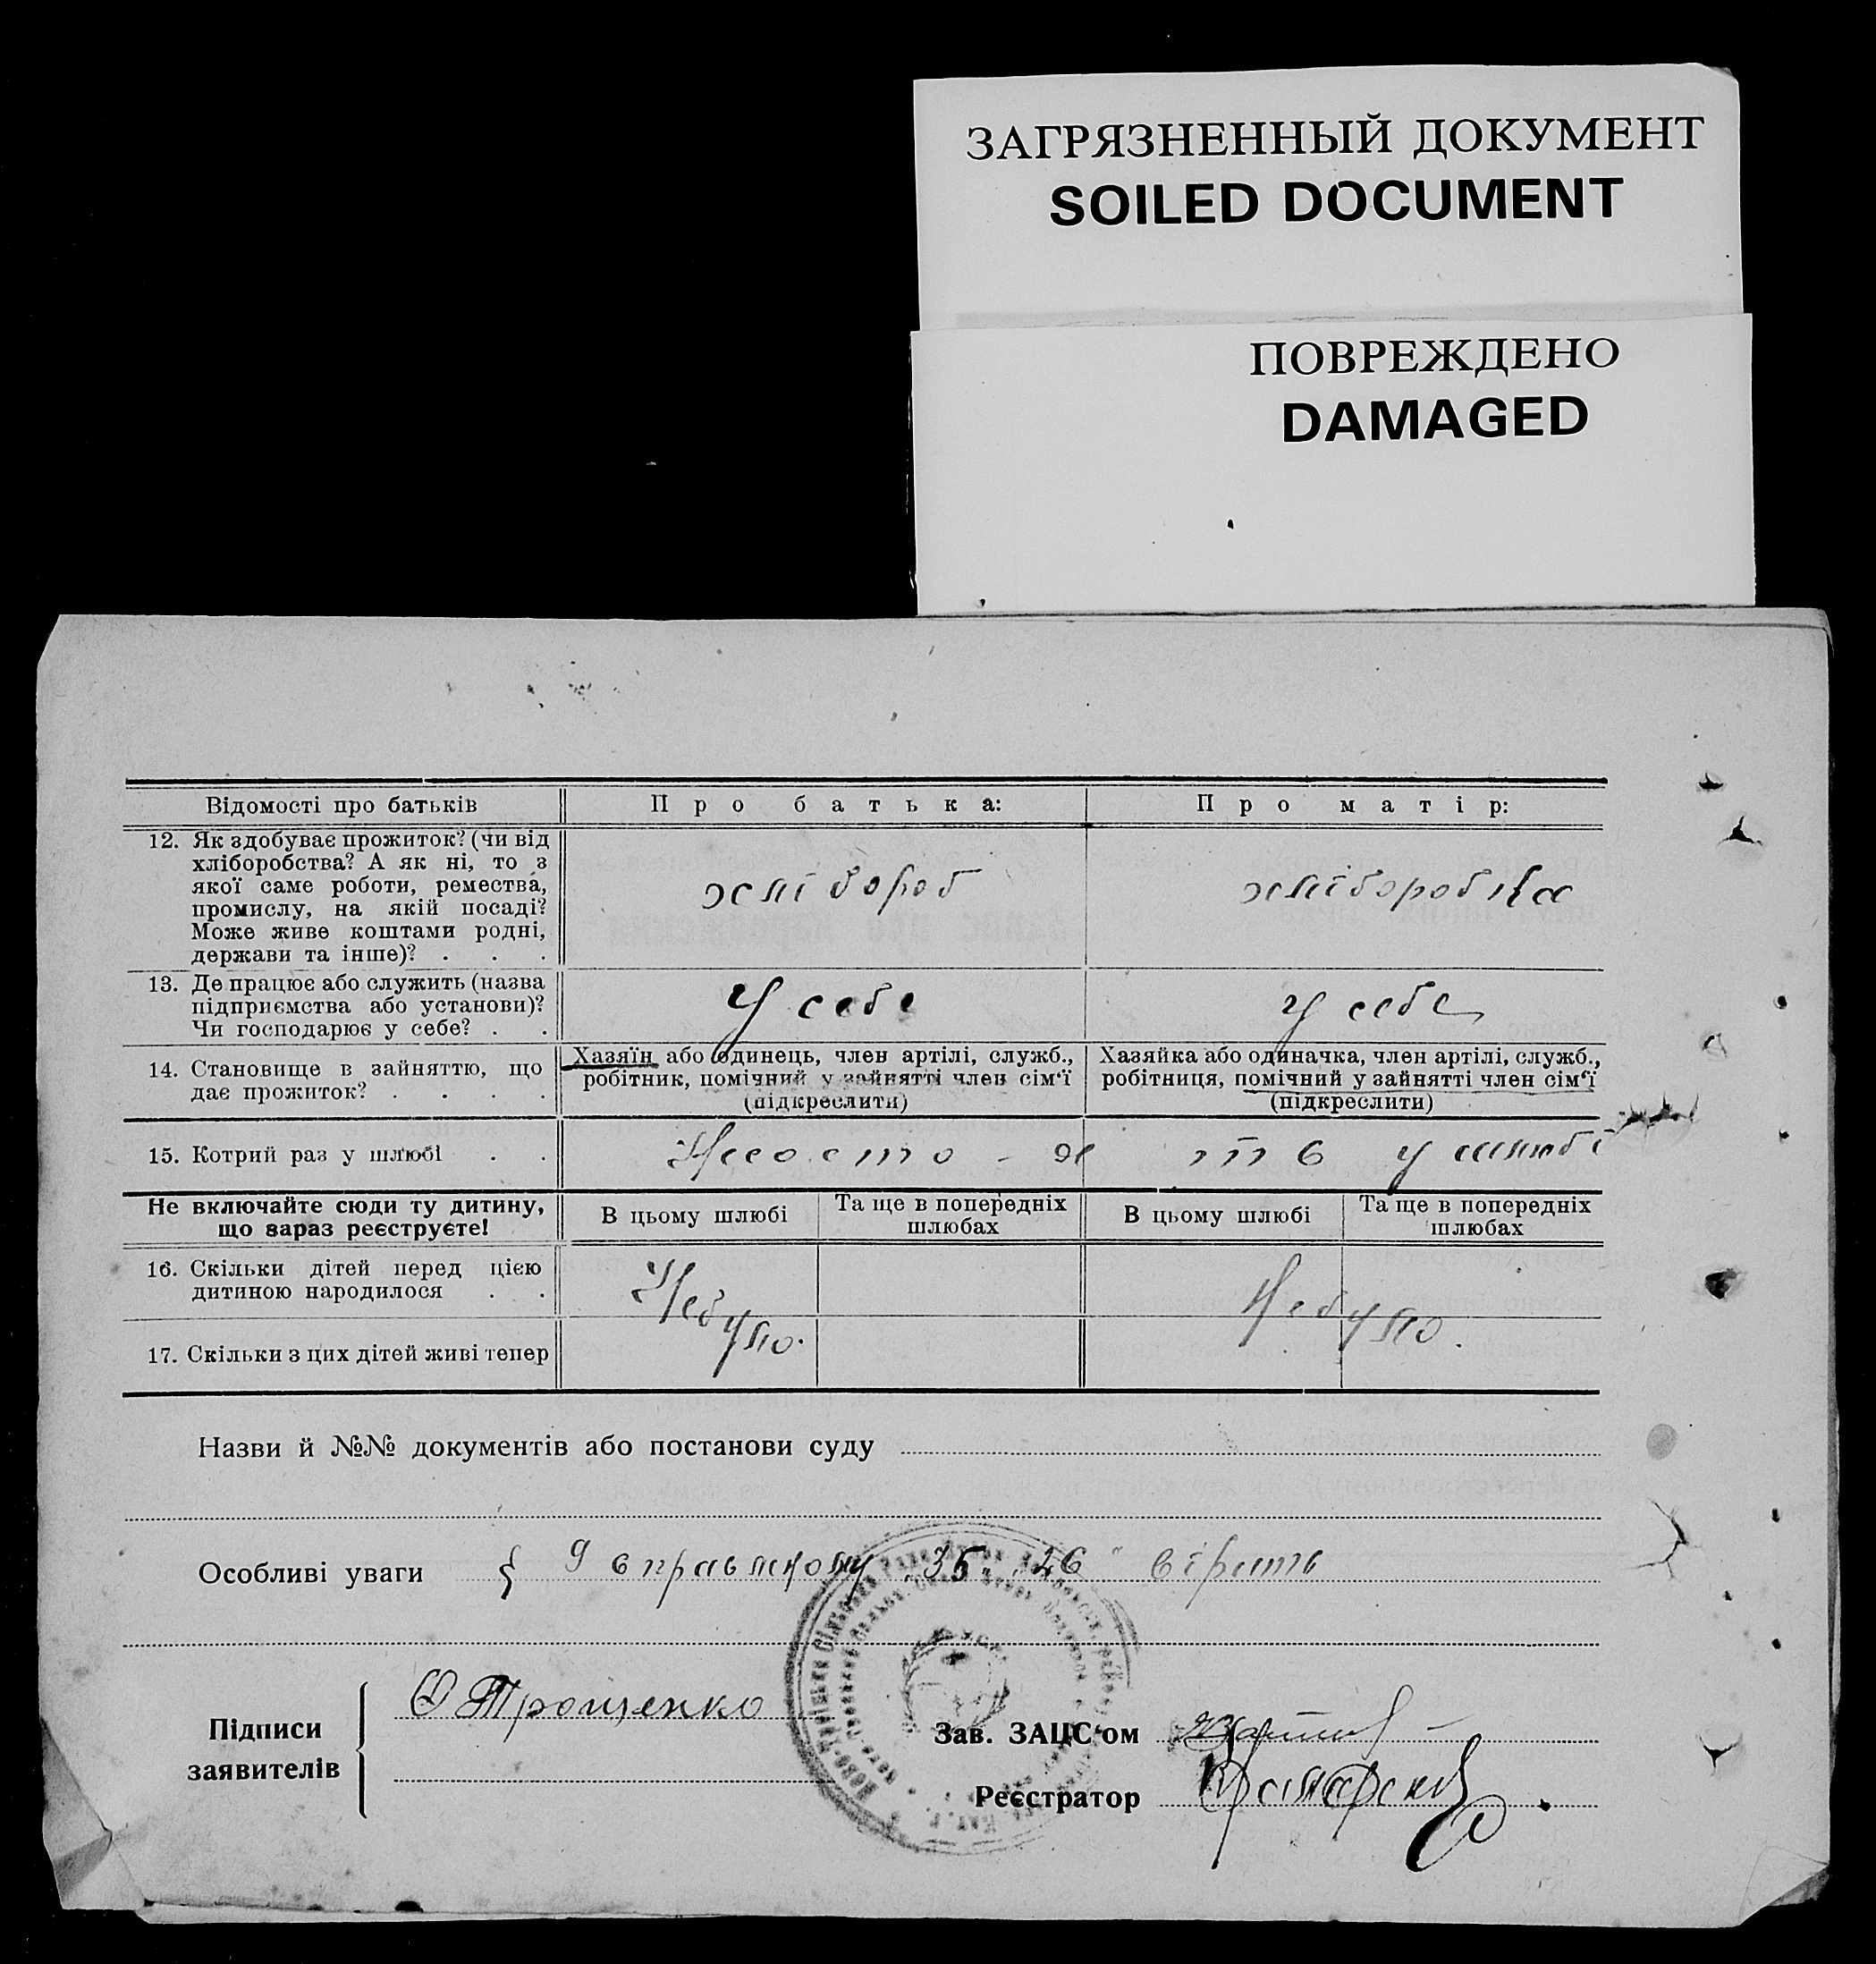 ЗАГРЯЗНЕННЫЙ ДОКУМЕНТ
SOILED DOCUMENT
ПОВРЕЖДЕНО
DAMAGED
Відомості про батьків
Про батька:
Про матір:
12. Як здобуває прожиток? (чи від
хліборобства? А як ні, то з
якої саме роботи, ремества,
промислу, на якій посаді?
Може живе коштами родні,
держави та інше)? . . .
хлібороб
хліборобка
13. Де працює або служить (назва
підприємства або установи)?
Чи господарює у себе? . .
У себе
у себе
14. Становище в зайняттю, що
дає прожиток? . . . .
Хазяїн або одинець, член артілі, служб.,
робітник, помічний у зайнятті член сім‘ї
(підкреслити)
Хазяйка або одиначка, член артілі, служб.,
робітниця, помічний у зайнятті член сім‘ї
(підкреслити)
15. Котрий раз у шлюбі . .
у шлюбі
Не включайте сюди ту дитину,
що зараз реєструєте!
В цьому шлюбі
Та ще в попередніх
шлюбах
В цьому шлюбі
Та ще в попередніх
шлюбах
16. Скільки дітей перед цією
дитиною народилося . .
Небуло.
Небуло.
17. Скільки з цих дітей живі тепер
Назви й №№ документів або постанови суду
Особливі уваги
35 26" вірить
Підписи
заявителів
О Трощенко
Зав. ЗАЦС‘ом
Реєстратор